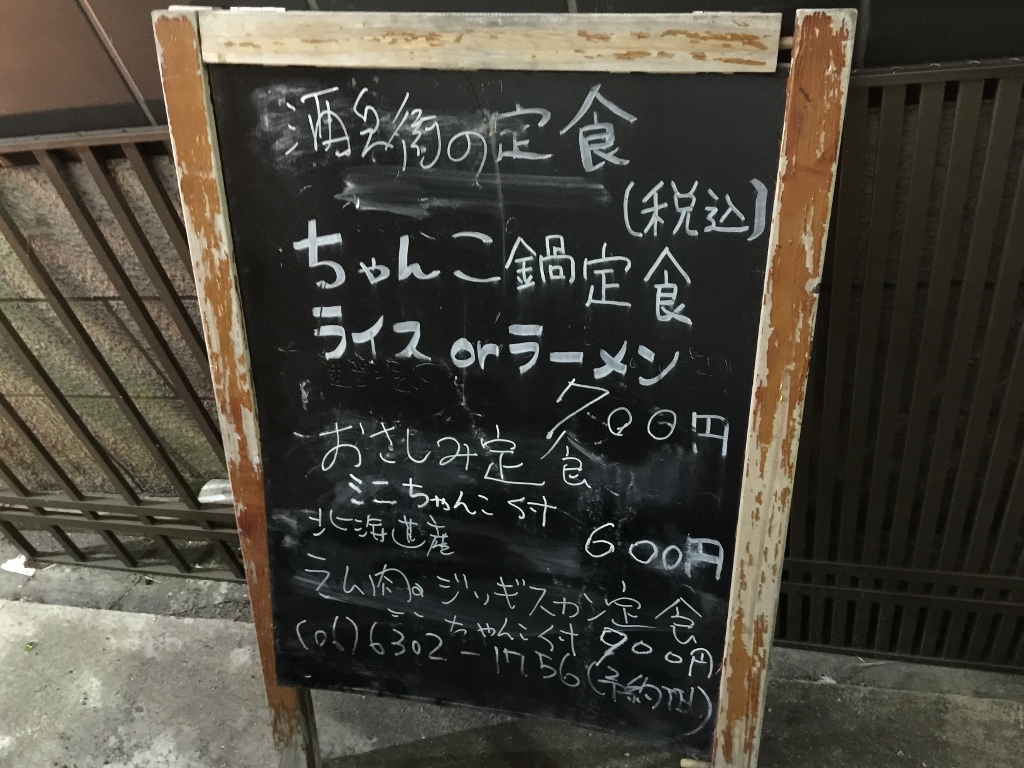 酒兵衛の定食
(税込)
ちゃんこ鍋定食
ライス or ラーメン
700円
おさしみ定食
ミニちゃんこ付
600円
北海道産
ラム肉のジンギスカン定食
ミニちゃんこ付 900円
(06)6302-1756(予約可)